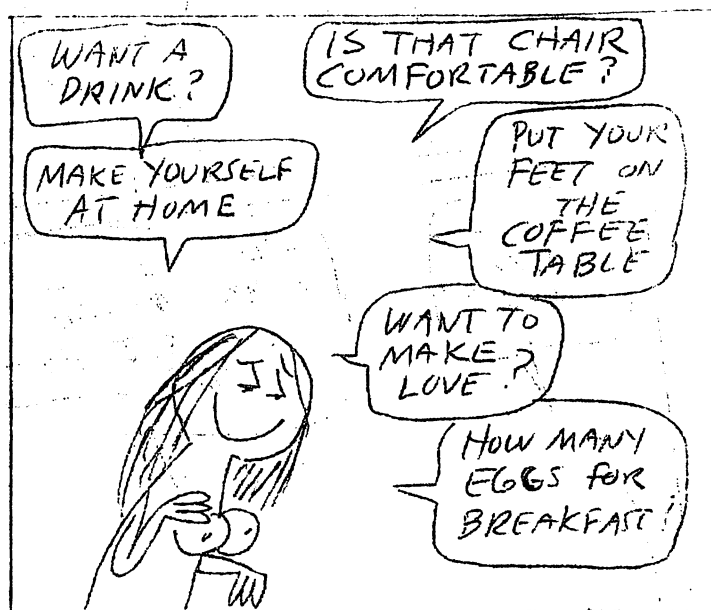 WANT A
DRINK?
MAKE YOURSELF
AT HOME
IS THAT CHAIR
COMFORTABLE?
PUT YOUR
FEET ON
THE
COFFEE
TABLE
WANT TO
MAKE
LOVE?
HOW MANY
EGGS FOR
BREAKFAST!